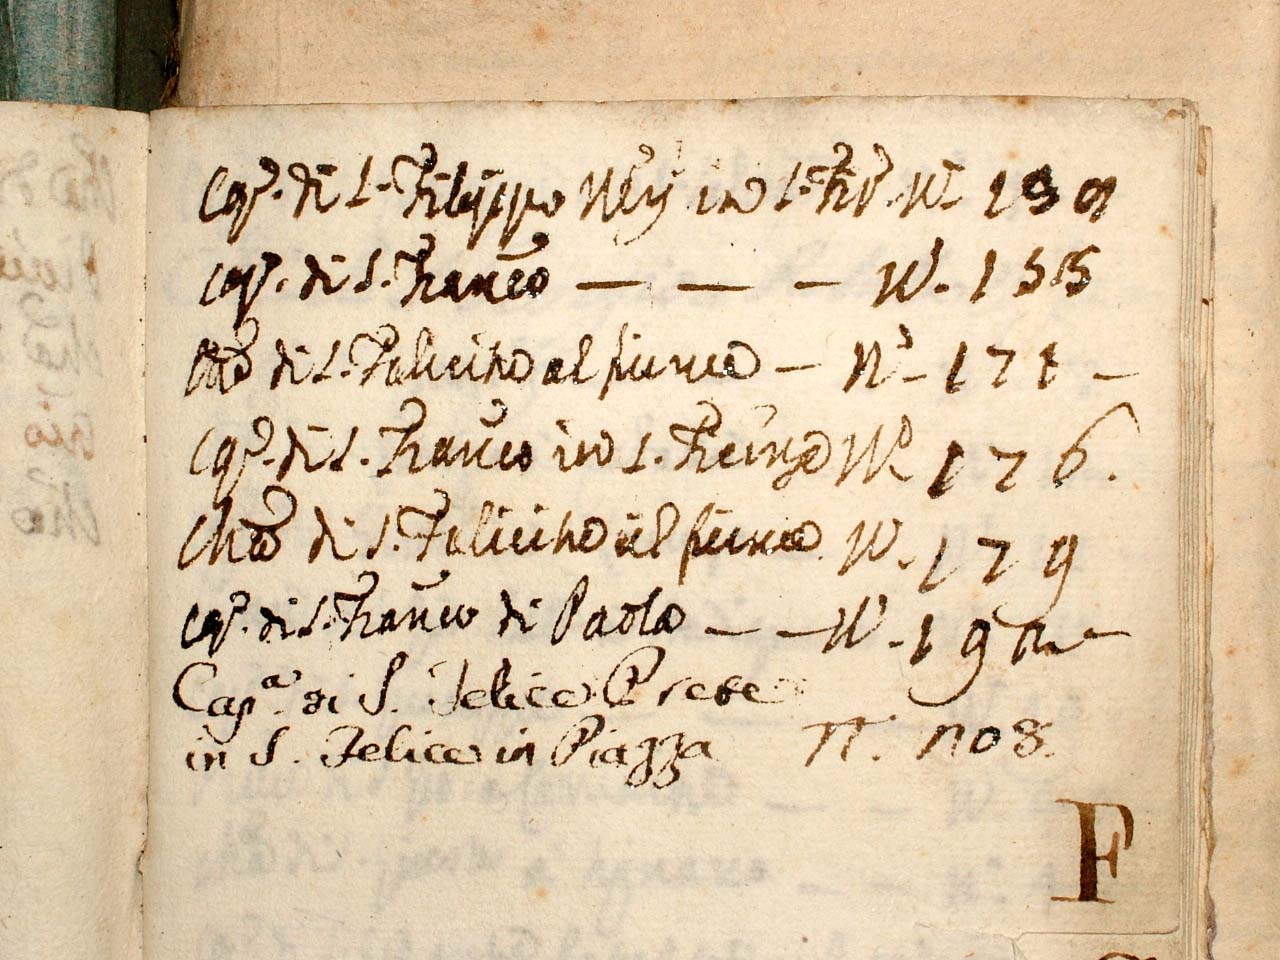 Capª. di S. Filippo Nerij in S. N. 139
Capª. di S. Franco — — — N. 155
Chã di S. Felicita al fiume — Nº 171 –
Capª. di S. Franco in S. Nº 176.
Chã di S. Felicita al fiume N. 179
Capª. di S. Franco di Paola — — N. 19
Capª. di S. Felice Prete
in S. Felice in Piazza N. 208.
F